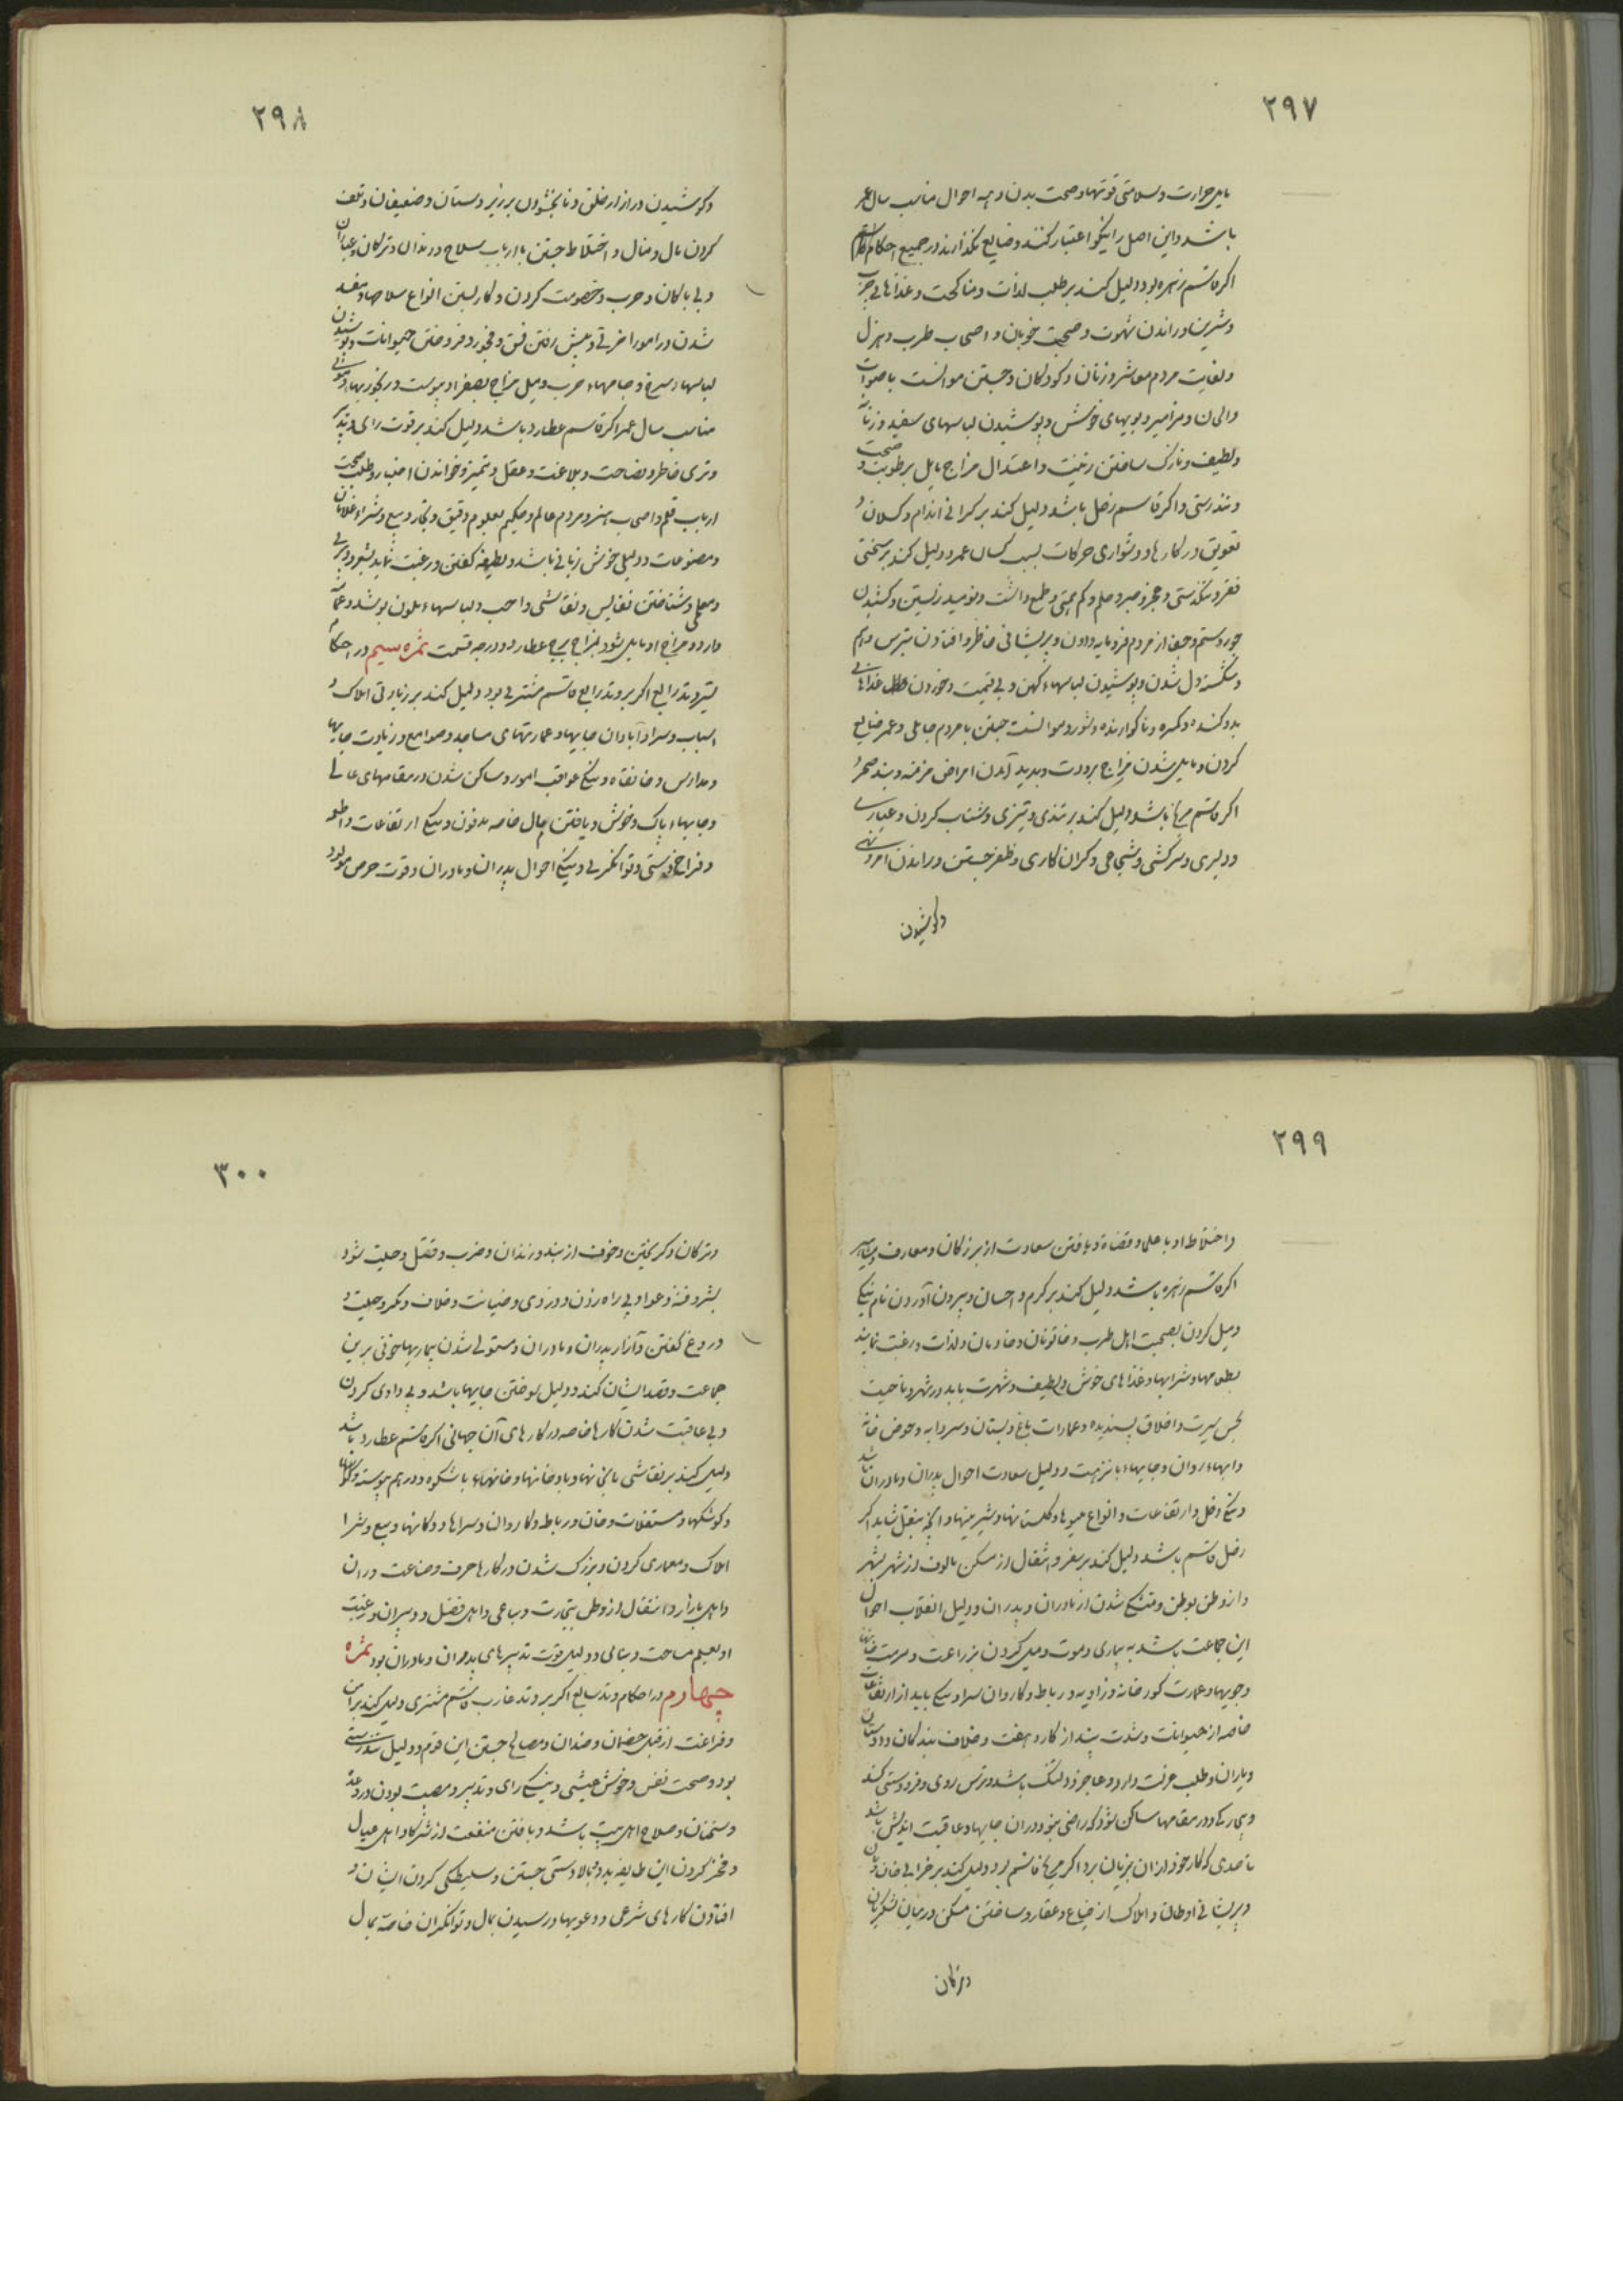 ۲۹۷
مایل حرارت و سلامتی قوتها و صحت بدن و همه احوال مناسب سال عمر
باشد و این اصل را نیکو اعتبار کنند و ضایع نگذارند در جمیع احکام
اکر قاسم زهره بود دلیل کند بر طلب لذات و مناکحت و غذاهای چرب
و شیرین و راندن شهوت و صحبت خوبان و اصحاب طرب و هزل
و بغایت مردم معاشر و زنان و کودکان و جستن موانست باصوات
و الحان و مزامیر و بویهای خوش و پوشیدن لباسهای سفید و زنانه
و لطیف و نازک ساختن زینت و اعتدال مزاج مایل برطوبت و صحت
و تندرستی و اکر قاسم زحل باشد دلیل کند بر کرانی اندام و کسلان و
تعویق در کارها و دشواری حرکات بسبب کسان عمر و دلیل کند بر سختی
فقر و تنکدستی و عجز و صبر و حلم و کم همتی و طمع داشت و نومید زیستن و کشیدن
جور و ستم و جفا از مردم فرومایه و دون و پریشانی خاطر و افتادن بترس و بیم
و شکسته دل شدن و پوشیدن لباسهاء کهن و بی قیمت و خوردن غذاهای
بد و کنده و مکره و ناکوارنده و شور و موانست جستن با مردم جاهل و عمر ضایع
کردن و مایل شدن مزاج ببرودت و پدید آمدن امراض مزمنه و بند سحر و
اکر قاسم مریخ باشد دلیل کند بر تندی و تیزی و شتاب کردن و عیاری
و دلیری و سرکشی و شجاعی و کران کاری و ظفر جستن و راندن امر و نهی
و کوشیدن
۲۹۸
و کوشیدن در ازار خلق و نابخشودن بر زیردستان و ضعیفان و تلف
کردن مال و منال و اختلاط جستن با ارباب سلاح و رندان و ترکان و عیاران
و بی باکان و حرب و خصومت کردن و کار بستن انواع سلاحها و مفید
شدن در امور اخرتی و پیش رفتن فسق و فجور و فروختن حیوانات و پوشیدن
لباسهاء سرخ و جامهاء حرب و میل مزاج بصفرا و یبوست و رنجوریهاء دموی
مناسب سال عمر اکر قاسم عطارد باشد دلیل کند بر قوت رای و تدبیر
و تری خاطر و فصاحت و بلاغت و عقل و تمیز و خواندن اخبار و طلب صحبت
ارباب قلم و اصحاب هنر و مردم عالم و حکیم بعلوم دقیق و تجار و بیع و شراء غلامان
و مصنوعات و دلیلی خوش زبانی باشد و لطیفه کفتن و رغبت نماید بشعر و دبیری
و معلمی و شناختن نفایس و نقاشی و احب و لباسهاء ملون پوشد و عمامه
دارد و مزاج او مایل شود بمزاج برج عطارد و درجه قسمت ثمره سیم در احکام
تسیر وتد رابع اکر بر وتد رابع قاسم مشتری بود دلیل کند بر زیادتی املاک و
اسباب و سراء آبادان جایها و عمارتهای مساجد و صوامع و زیادت جایها
و مدارس و خانقاه و نیکی عواقب امور و ساکن شدن در مقامهای عالی
و جایهاء پاک و خوش و یافتن مال خاصه مدفون و نیکی ارتفاعات و اطعمه
و فراخ دستی و توانکری و نیکی احوال پدران و مادران و قوت حرص مولود
۲۹۹
و اختلاط او با علما و قضاة و یافتن سعادت از بزرکان و معارف و مشاهیر
اکر قاسم زهره باشد دلیل کند بر کرم و احسان و بیرون آوردن نام نیک
و میل کردن بصحبت اهل طرب و خاتونان و خادمان و لذات و رغبت نمایند
بطعامها و شرابها و غذاهای خوش و لطیف و شهرت یابد در شهر و ناحیت
بحسن سیرت و اخلاق پسندیده و عمارات باغ و بستان و سردابه و حوض خانه
و ابهاء روان و جایهاء با نزهت و دلیل سعادت احوال پدران و مادران باشد
و نیکی دخل و ارتفاعات و انواع میوها و کلستانها و شیرینها و انچه بنقل شاید اکر
زحل قاسم باشد دلیل کند بر سفر و انتقال از مسکن مالوف از شهر بشهر
و از وطن بوطن و متنکی شدن از مادران و پدران و دلیل انقلاب احوال
این جماعت باشد به بیماری و موت و میل کردن بزراعت و مرمت خانها
و جویها و عمارت کورخانه و زاویه و رباط و کاروان سرا و نیکی یابد از ارتفاعات
خاصه از حیوانات و شدت بیند از کار و هفت و خلاف بندکان و دوستان
و یاران و طلب عزلت دارد و عاجز و دلتنک باشد و ترس روی و فرودستی کند
و بیماری و در مقامها ساکن شود که راضی نبود در ان جایها و عاقبت اندیش باشد
تا حدی که کار خود از ان بزیان برد اکر مریخ قاسم بود دلیل کند بر خرابی خان و مان
و پریشانی اوطان و املاک از ضیاع و عقار و ساختن مسکن در میان لشکریان
و ترکان
۳۰۰
و ترکان و کریختن و خوف از بند و زندان و ضرب و قتل و حیلت شود
بشر و فتنه و عوا و بی راه زدن و دزدی و خیانت و خلاف و مکر و حیلت و
دروغ کفتن و آزار پدران و مادران و مستولی شدن بیماریها خونی برین
جماعت و قصد ایشان کند و دلیل سوختن جایها باشد و بی دادی کردن
و بی عاقبت شدن کارها خاصه در کارهای آن جهانی اکر قاسم عطارد باشد
دلیل کند بر نقاشی بانی نهاد و بادخانها و خانهاء باشکوه و درهم پیوسته و کوشها
و کوشکها و مستغلات و خان و رباط و کاروان و سراها و دکانها و بیع و شرا
املاک و معماری کردن و بزرک شدن در کارها حرف و صناعت دران
و اهل بازار و انتقال از وطن بتجارت و بیاعی و اهل فضل و دبیران و رغبت
او بعلم مساحت و بنایی و دلیل قوت تدبیرهای پدران و مادران بود ثمره
چهارم در احکام وتد سابع اکر بر وتد غارب قاسم مشتری دلیل کند بر امن
و فراغت از قبل خصمان و ضدان و مصالح جستن این قوم و دلیل تندرستی
بود و صحت نفس و خوش عیشی و نیکی رای و تدبیر و مصیب بودن در وعده
و سخنان و صلاح اهل بیت باشد و یافتن منفعت از شرکا و اهل عیال
و فخر کردن این طایفه بدو و بالادستی جستن و سلیطکی کردن ایشان و
افتادن کارهای شرعی و دعویها و رسیدن بمال و توانکران خاصه بمال